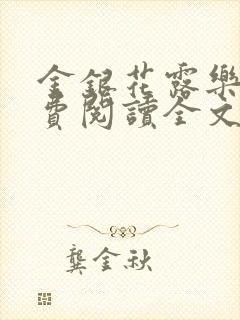 金銀花露樂
費閱讀全文
龔金秋